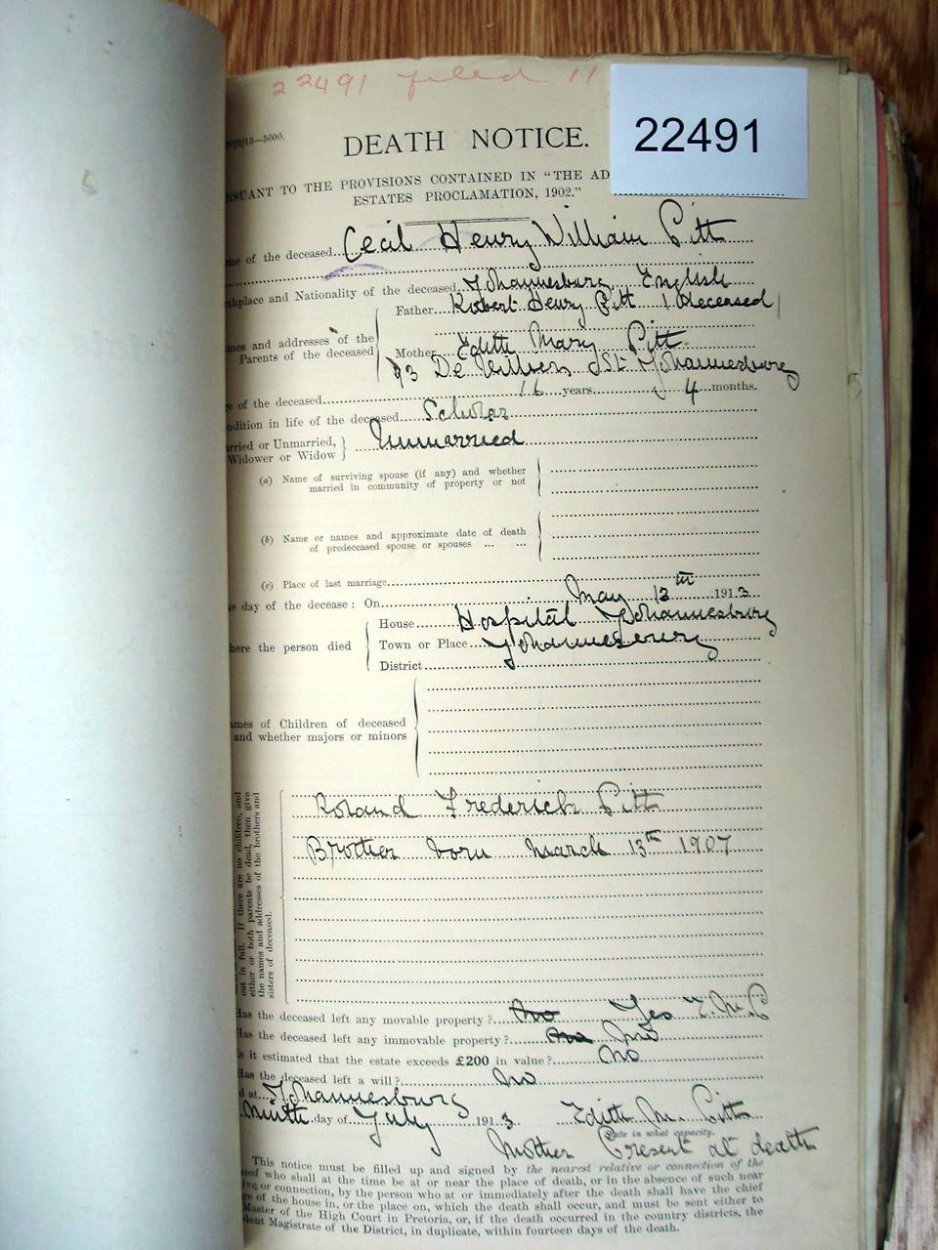 22491 filed 11
22491
15—5000.
DEATH NOTICE.
RSUANT TO THE PROVISIONS CONTAINED IN "THE AD
ESTATES PROCLAMATION, 1902."
me of the deceased Cecil Henry William Pitt
thplace and Nationality of the deceased Johannesburg English
Father Robert Henry Pitt (Deceased)
mes and addresses of the
Parents of the deceased
Mother Edith Mary Pitt
93 De Villiers St Johannesburg
e of the deceased 16 years 4 months.
ndition in life of the deceased Scholar
rried or Unmarried,
Widower or Widow
Unmarried
(a) Name of surviving spouse (if any) and whether
married in community of property or not
(b) Name or names and approximate date of death
of predeceased spouse or spouses ... ...
(c) Place of last marriage
e day of the decease: On May 12th 1913
House Hospital Johannesburg
here the person died
Town or Place Johannesburg
District
ames of Children of deceased
and whether majors or minors
out in full. If there are no children, and
either or both parents be dead, then give
the names and addresses of the brothers and
sisters of deceased.
Roland Frederick Pitt
Brother born March 13th 1907
Has the deceased left any movable property? No Yes E.M.P
Has the deceased left any immovable property? No
Is it estimated that the estate exceeds £200 in value? No
Has the deceased left a will? No
d at Johannesburg
ninth day of July 1913 Edith M. Pitt
State in what capacity.
Mother Present at death
This notice must be filled up and signed by the nearest relative or connection of the
sed who shall at the time be at or near the place of death, or in the absence of such near
ve or connection, by the person who at or immediately after the death shall have the chief
ge of the house in, or the place on, which the death shall occur, and must be sent either to
Master of the High Court in Pretoria, or, if the death occurred in the country districts, the
dent Magistrate of the District, in duplicate, within fourteen days of the death.